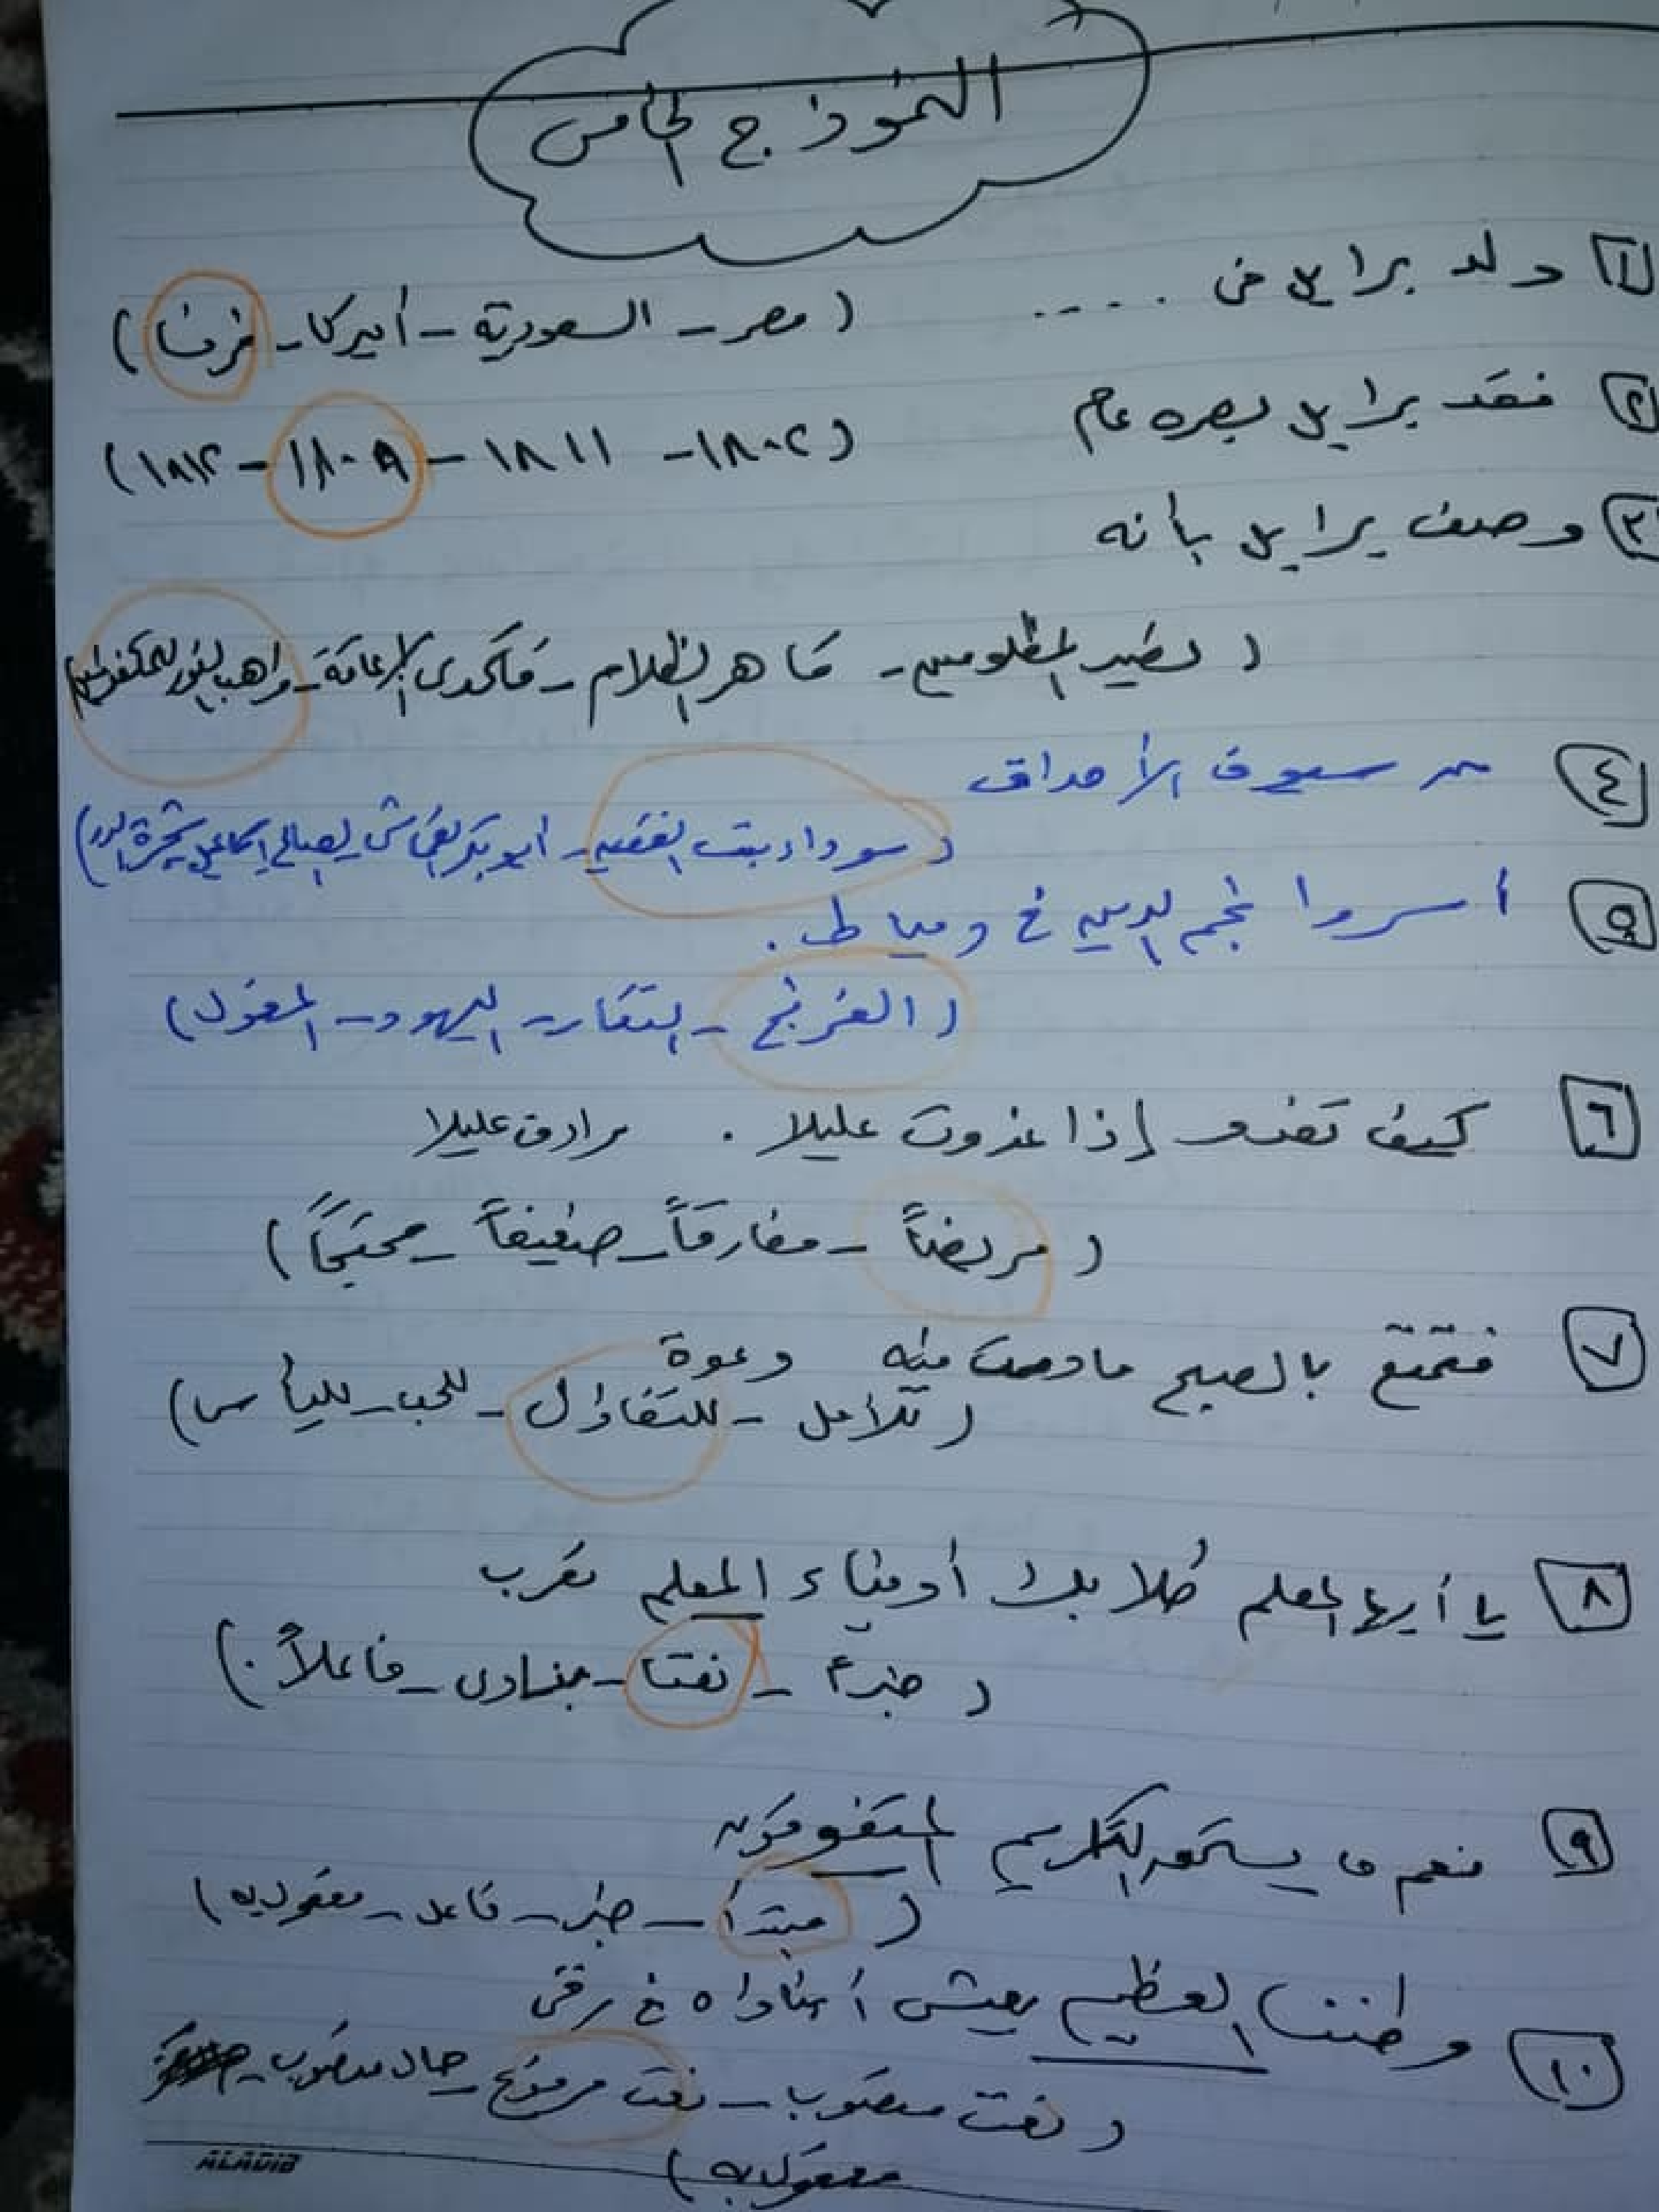 النموذج الخامس
١ ولد برايل فى ....
( مصر - السعودية - أمريكا - فرنسا )
٢ فقد برايل بصره عام
(١٨٠٢ - ١٨١١ - ١٨٠٩ - ١٨١٢)
٣ وصف برايل بأنه
( نصير المظلومين - قاهر الظلام - متحدى الإعاقة - واهب النور للمكفوفين )
٤ من سيوف الأحداق
( سوداء بنت الفقيه - أبو بكر القماش - الصالح إسماعيل - شجرة الدر )
٥ أسروا نجم الدين في دمياط .
( الفرنج - التتار - اليهود - المغول )
٦ كيف تغدو إذا غدوت عليلا . مرادف عليلا
( مريضاً - مفارقاً - ضعيفاً - محتجاً )
٧ فتمتع بالصبح مادمت فيه دعوة
( للأمل - للتفاؤل - للحب - لليأس )
٨ يا أيها المعلم طلابك أوفياء المعلم تعرب
( خبراً - نعتا - منادى - فاعلاً . )
٩ نعم ما يستحق التكريم المتفوقون
( مبتدأ - خبر - فاعل - مفعول به )
١٠ وطننا العظيم يعيش أبناؤه في رقى
( نعت منصوب - نعت مرفوع - حال منصوب -
مفعول به )
ALADIB